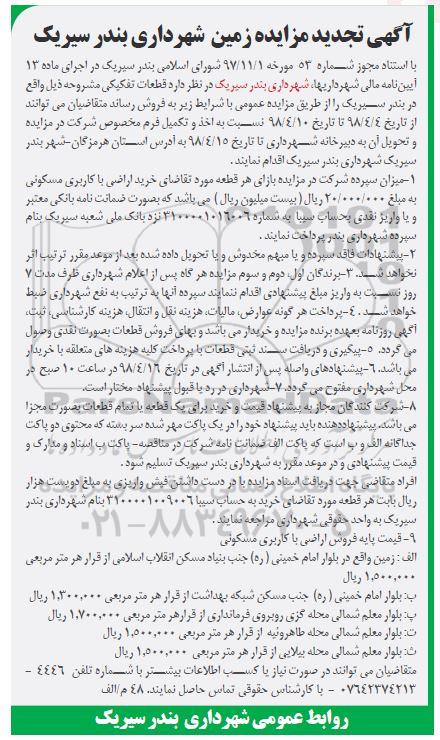 آگهی تجدید مزایده زمین شهرداری بندر سیریک
با استناد مجوز شماره ۵۳ مورخه ۹۷/۱۱/۱ شورای اسلامی بندر سیریک در اجرای ماده ۱۳
آیین‌نامه مالی شهرداریها، شهرداری بندر سیریک در نظر دارد قطعات تفکیکی مشروحه ذیل واقع
در بندر سیریک را از طریق مزایده عمومی با شرایط زیر به فروش رساند متقاضیان می توانند
از تاریخ ۹۸/۴/۴ تا تاریخ ۹۸/۴/۱۰ نسبت به اخذ و تکمیل فرم مخصوص شرکت در مزایده
و تحویل آن به دبیرخانه شهرداری تا تاریخ ۹۸/۴/۱۵ به آدرس استان هرمزگان-شهر بندر
سیریک شهرداری بندر سیریک اقدام نمایند.
۱-میزان سپرده شرکت در مزایده بازای هر قطعه مورد تقاضای خرید اراضی با کاربری مسکونی
به مبلغ ۲۰/۰۰۰/۰۰۰ ریال (بیست میلیون ریال) می باشد که بصورت ضمانت نامه بانکی معتبر
و یا واریز نقدی بحساب سیبا به شماره ۳۱۰۰۰۰۱۰۱۶۰۰۶ نزد بانک ملی شعبه سیریک بنام
سپرده شهرداری بندر پرداخت نمایند.
۲-پیشنهادات فاقد سپرده و یا مبهم مخدوش و یا تحویل داده شده بعد از موعد مقرر ترتیب اثر
نخواهد شد. ۳-برندگان اول، دوم و سوم مزایده هر گاه پس از اعلام شهرداری ظرف مدت ۷
روز نسبت به واریز مبلغ پیشنهادی اقدام ننمایند سپرده آنها به ترتیب به نفع شهرداری ضبط
خواهد شد. ۴-پرداخت هر گونه عوارض، مالیات، هزینه نقل و انتقال، هزینه کارشناسی، ثبت،
آگهی روزنامه بعهده برنده مزایده و خریدار می باشد و بهای فروش قطعات بصورت نقدی وصول
می گردد. ۵-پیگیری و دریافت سند ثبتی قطعات با پرداخت کلیه هزینه های متعلقه با خریدار
می باشد. ۶-پیشنهادهای واصله پس از انتشار آگهی در تاریخ ۹۸/۴/۱۶ در ساعت ۱۰ صبح در
محل شهرداری مفتوح می گردد. ۷-شهرداری در رد یا قبول پیشنهاد مختار است.
۸-شرکت کنندگان مجاز به پیشنهاد قیمت و خرید برای یک قطعه یا تمام قطعات بصورت مجزا
می باشد. پیشنهاددهنده باید پیشنهاد خود را در یک پاکت مهر شده سر بسته که محتوی دو پاکت
جداگانه الف و ب است که پاکت الف ضمانت نامه شرکت در مناقصه- پاکت ب اسناد و مدارک و
قیمت پیشنهادی و در موعد مقرر به شهرداری بندر سیریک تسلیم شود.
افراد متقاضی جهت دریافت اسناد مزایده با در دست داشتن فیش واریزی به مبلغ دویست هزار
ریال بابت هر قطعه مورد تقاضای خرید به حساب سیبا ۳۱۰۰۰۰۱۰۰۹۰۰۶ بنام شهرداری بندر
سیریک به واحد حقوقی شهرداری مراجعه نمایند.
۹-قیمت پایه فروش اراضی با کاربری مسکونی
الف: زمین واقع در بلوار امام خمینی (ره) جنب بنیاد مسکن انقلاب اسلامی از قرار هر متر مربعی
۱,۵۰۰,۰۰۰ ریال
ب: بلوار امام خمینی (ره) جنب مسکن شبکه بهداشت از قرار هر متر مربعی ۱,۳۰۰,۰۰۰ ریال
پ: بلوار معلم شمالی محله گزی روبروی فرمانداری از قرار هر متر مربعی ۱,۷۰۰,۰۰۰ ریال
ت: بلوار معلم شمالی محله طاهرونیه از قرار هر متر مربعی ۱,۵۰۰,۰۰۰ ریال
ث: بلوار معلم شمالی محله بیلایی از قرار هر متر مربعی ۱,۵۰۰,۰۰۰ ریال
متقاضیان می توانند در صورت نیاز یا کسب اطلاعات بیشتر با شماره تلفن ۴۴۴۶ -
۰۷۶۴۲۳۷۴۲۱۳ - با کارشناس حقوقی تماس حاصل نمایند. ۴۸ م/الف
روابط عمومی شهرداری بندر سیریک
ParsNamadData
۰۲۱-۸۸۳۴۹۶۷۰-۵